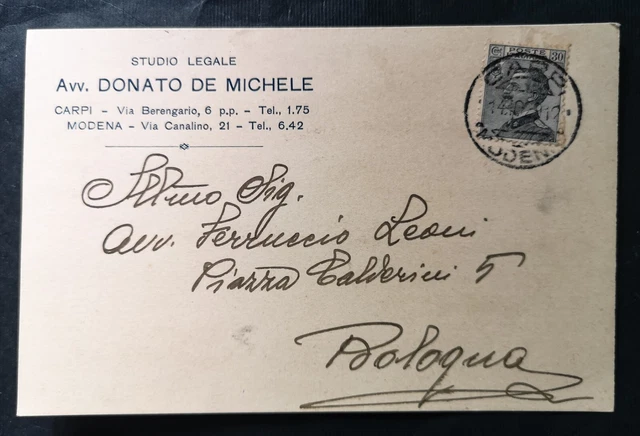 STUDIO LEGALE
Avv. DONATO DE MICHELE
CARPI - Via Berengario, 6 p.p. - Tel., 1.75
MODENA - Via Canalino, 21 - Tel., 6.42
POSTE
30
CARPI
MODENA
Ill.mo Sig.
Avv. Ferruccio Leoni
Piazza Calderini 5
Bologna